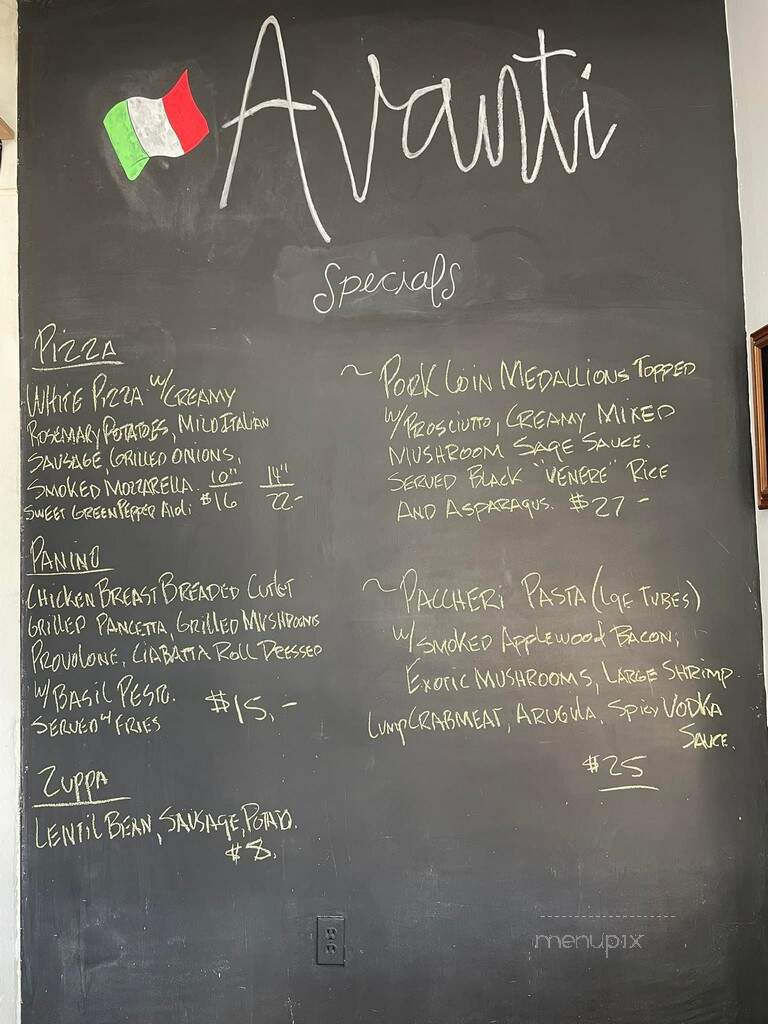 Avanti
Specials
Pizza
White Pizza w/Creamy
Rosemary Potatoes, Mild Italian
Sausage, Grilled Onions,
Smoked Mozzarella. 10" 14"
Sweet Green Pepper Aioli $16 22-
Panino
Chicken Breast Breaded Cutlet
Grilled Pancetta, Grilled Mushrooms
Provolone, Ciabatta Roll Dressed
w/Basil Pesto.
Served w/ Fries $15.-
Zuppa
Lentil Bean, Sausage, Potato.
$8.
~ Pork Loin Medallions Topped
w/Prosciutto, Creamy Mixed
Mushroom Sage Sauce.
Served Black "Venere" Rice
And Asparagus. $27-
~ Paccheri Pasta (Lge Tubes)
w/Smoked Applewood Bacon,
Exotic Mushrooms, Large Shrimp
Lump Crabmeat, Arugula, Spicy Vodka
Sauce.
$25
menupix